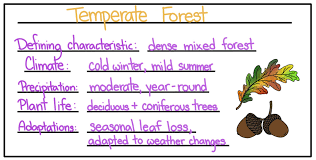 Temperate Forest
Defining characteristic: dense mixed forest
Climate: cold winter, mild summer
Precipitation: moderate, year-round
Plant life: deciduous + coniferous trees
Adaptations: seasonal leaf loss,
adapted to weather changes